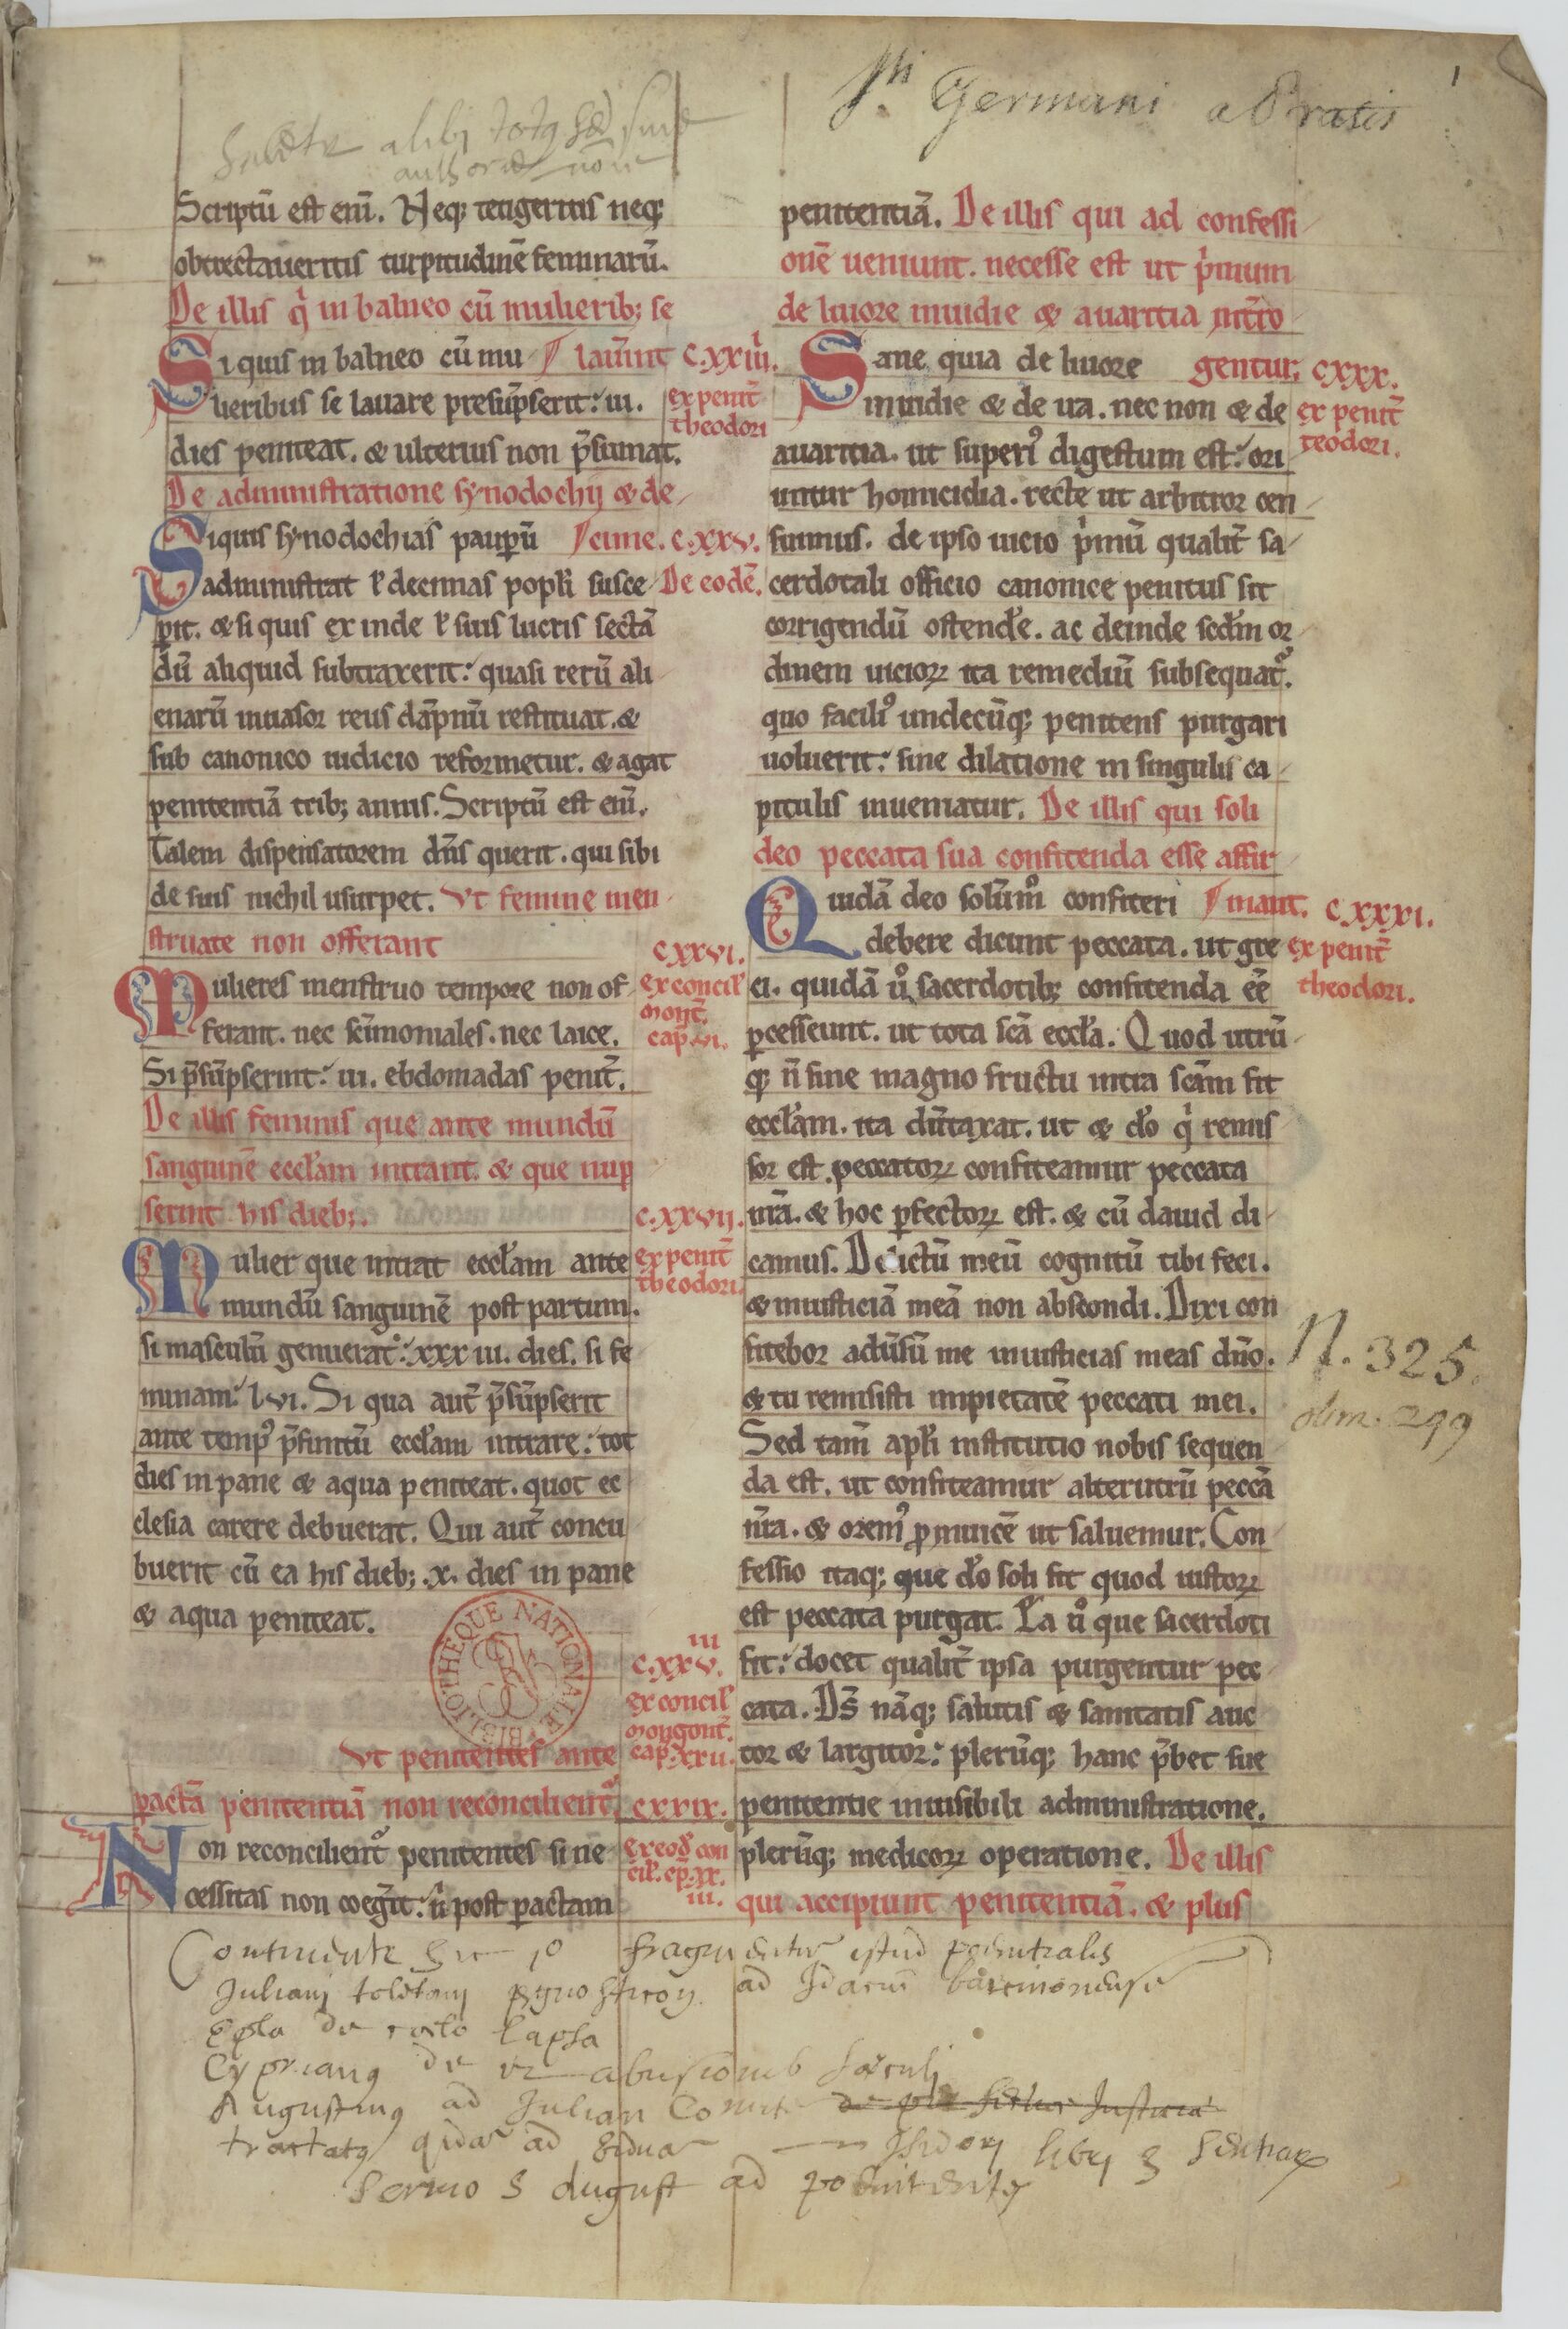 Sti Germani a Pratis
1
Scriptū est enī. Neq; tetigeritis neq;
obtrectaueritis turpitudinē feminarū.
De illis q̇ in balneo cū mulierib; se
Si quis in balneo cū mu- lauerīt C.XXIIII.
lieribus se lauare presūpserit: III. ex penit̄ theodori
dies peniteat. & ulterius non p̄sumat.
De administratione synodochij & de-
Siquis synodochias paup̄ū cime. C.XXV.
administrat ł decimas popl̄i susce- De eodē.
pit. & si quis ex inde ł suis lucris sectā
dū aliquid subtraxerit: quasi rerū ali
enarū inuasor reus dāpnū restituat. &
sub canonico iudicio reformetur. & agat
penitentiā trib; annis. Scriptū est enī.
Talem dispensatorem dn̄s querit. qui sibi
de suis nichil usurpet. Ut femine men-
struate non offerant
CXXVI.
Mulieres menstruo tempore non of- ex concil̄
ferant. nec sc̄imoniales. nec laice. cap̄. VI.
Si p̄sūpserint: III. ebdomadas penit̄.
De illis feminis que ante mundū
sanguinē eccl̄am intrant. & que nup
serint his dieb;. C.XXVII.
Mulier que intrat eccl̄am ante ex penit̄
mundū sanguinē post partum. theodori.
si masculū genuerat: XXXIII. dies. si fe
minam: LVI. Si qua aut̄ p̄sūpserit
ante temp' p̄finitū eccl̄am intrare: tot
dies in pane & aqua peniteat. quot ec
clesia carere debuerat. Qui aut̄ concu
buerit cū ea his dieb; .X. dies in pane
& aqua peniteat.
BIBLIOTHEQUE NATIONALE
III
C.XXV.
ex concil̄
mogont̄.
Ut penitentes ante cap̄.
pactā penitentiā non reconcilient̄. CXXIX.
Non reconcilient̄ penitentes si ne ex eod̄ con
cessitas non coeḡit: n̄ post pactam
penitentiā. De illis qui ad confessi-
onē ueniunt. necesse est ut ṗmum
de liuore inuidie & auaritia int̄ro-
Sane quia de liuore gentur; CXXX.
inuidie & de ira. nec non & de ex penit̄
auaritia. ut superi' digestum est: ori teodori.
untur homicidia. recte ut arbitror cen-
suimus. de ipso uicio ṗmū qualit̄ sa-
cerdotali officio canonice penitus sit
corrigendū ostendē. ac deinde scd̄m or
dinem uicioꝝ ita remediū subsequat̄.
quo facili' undecūq; penitens purgari
uoluerit: sine dilatione in singulis ca-
pitulis inueniatur. De illis qui soli
deo peccata sua confitenda esse affir-
Quidā deo solūmo confiteri mant. CXXXI.
debere dicunt peccata. ut gre ex penit̄
ci. quidā u° sacerdotib; confitenda eē theodori.
ꝑcesserunt. ut tota sc̄a eccl̄a. Quod utrū-
q; n̄ sine magno fructu intra sc̄am fit
eccl̄am. ita dūtaxat. ut & dō q̇ remis
sor est peccatoꝝ confiteamur peccata
nr̄a. & hoc ꝑfectoꝝ est. & cū dauid di-
camus. Delictū meū cognitū tibi feci.
& iniusticiā meā non abscondi. Dixi con
fitebor aduersū me iniusticias meas dn̄o.
& tu remisisti impietatē peccati mei.
Sed tam̄ apl̄i institutio nobis sequen
da est. ut confiteamur alterutrū peccā
nr̄a. & orem' p̱ inuicē ut saluemur. Con
fessio itaq; que dō soli fit quod iustoꝝ
est peccata purgat. Ea u° que sacerdoti
fit: docet qualit̄ ipsa purgentur pec-
cata. Ds̄ nāq; salutis & sanitatis auc
tor & largitor: plerūq; hanc p̄bet sue
penitentie inuisibili administratione.
plerūq; medicoꝝ operatione. De illis
qui accipiunt penitentiā. & plus
N. 325.
olim. 299
Augustinus ad Julian Comite
Sermo S August ad